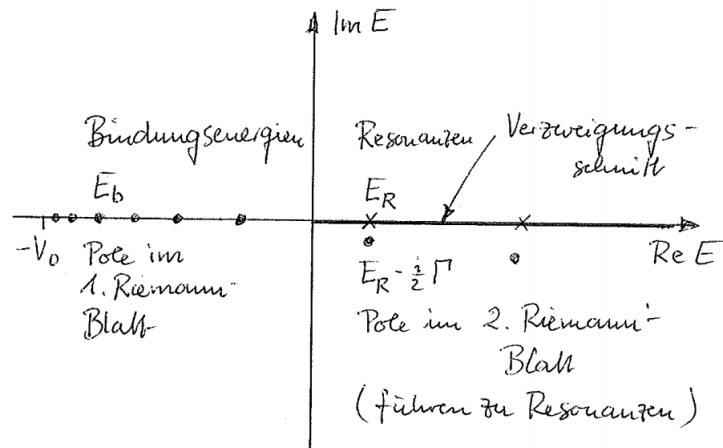 Im E
Bindungsenergien
Resonanzen
Verzweigungs-
schnitt
E_b
E_R
-V_0
Re E
Pole im
1. Riemann-
Blatt
E_R - i/2 Γ
Pole im 2. Riemann-
Blatt
(führen zu Resonanzen)